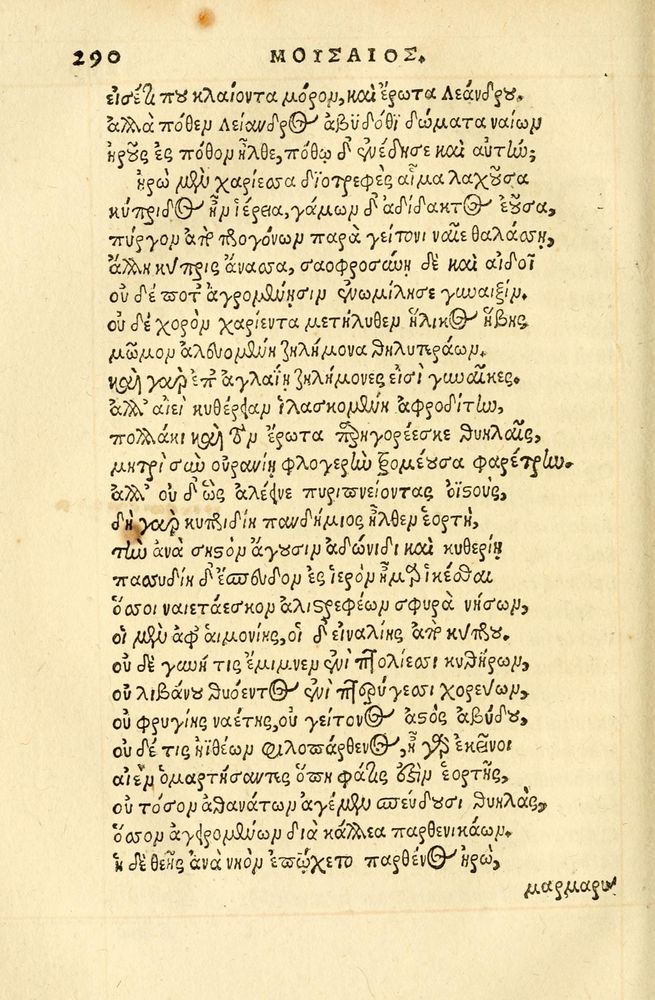 290 ΜΟΥΣΑΙΟΣ.
εἰσέτι που κλαίοντα μόρον, καὶ ἔρωτα Λεάνδρου.
ἀλλὰ πόθεν Λείανδρος ἀβυδόθι δώματα ναίων
ἡροῦς ἐς πόθον ἦλθε, πόθῳ δ' ἐνέδησε καὶ αὐτὴν;
ἡρὼ μὲν χαρίεσσα διοτρεφὲς αἷμα λαχοῦσα
κύπριδος ἦν ἱέρεια, γάμων δ' ἀδίδακτος ἐοῦσα,
πύργον ἀπὸ προγόνων παρὰ γείτονι ναῖε θαλάσσῃ,
ἄλλη κύπρις ἄνασσα, σαοφροσύνῃ δὲ καὶ αἰδοῖ
οὐ δέ ποτ' ἀγρομένῃσιν ἐνωμίλησε γυναιξίν.
οὐ δὲ χορὸν χαρίεντα μετήλυθεν ἥλικος ἥβης
μῶμον ἀλευομένη ζηλήμονα θηλυτεράων.
καὶ γὰρ ἐπ' ἀγλαΐῃ ζηλήμονες εἰσὶ γυναῖκες.
ἀλλ' αἰεὶ κυθέρειαν ἱλασκομένη ἀφροδίτην,
πολλάκι καὶ τὸν ἔρωτα παρηγορέεσκε θυηλαῖς,
μητρὶ σὺν οὐρανίῃ φλογερὴν τρομέουσα φαρέτρην.
ἀλλ' οὐ δ' ὣς ἀλέεινε πυριπνείοντας ὀϊστούς,
δὴ γὰρ κυπριδίη πανδήμιος ἦλθεν ἑορτὴ,
τὴν ἀνὰ σηστὸν ἄγουσιν ἀδώνιδι καὶ κυθερίῃ
πασσυδίῃ δ' ἔσπευδον ἐς ἱερὸν ἦμαρ ἱκέσθαι
ὅσσοι ναιετάεσκον ἁλιστρεφέων σφυρὰ νήσων,
οἱ μὲν ἀφ' αἱμονίης, οἱ δ' εἰναλίης ἀπὸ κύπρου.
οὐ δὲ γυνή τις ἔμιμνεν ἐνὶ πτολίεσσι κυθήρων,
οὐ λιβάνου θυόεντος ἐνὶ πτερύγεσσι χορεύων,
οὐ φρυγίης ναέτης, οὐ γείτονος ἀστὸς ἀβύδου,
οὐ δέ τις ἠϊθέων φιλοπάρθενος, ἦ γὰρ ἐκεῖνοι
αἰὲν ὁμαρτήσαντες ὅπη φάτις ἐστὶν ἑορτῆς,
οὐ τόσον ἀθανάτων ἀγέμεν σπεύδουσι θυηλὰς,
ὅσσον ἀγειρομένων διὰ κάλλεα παρθενικάων.
ἡ δὲ θεῆς ἀνὰ νηὸν ἐπῴχετο παρθένος ἡρὼ,
μαρμαρυ